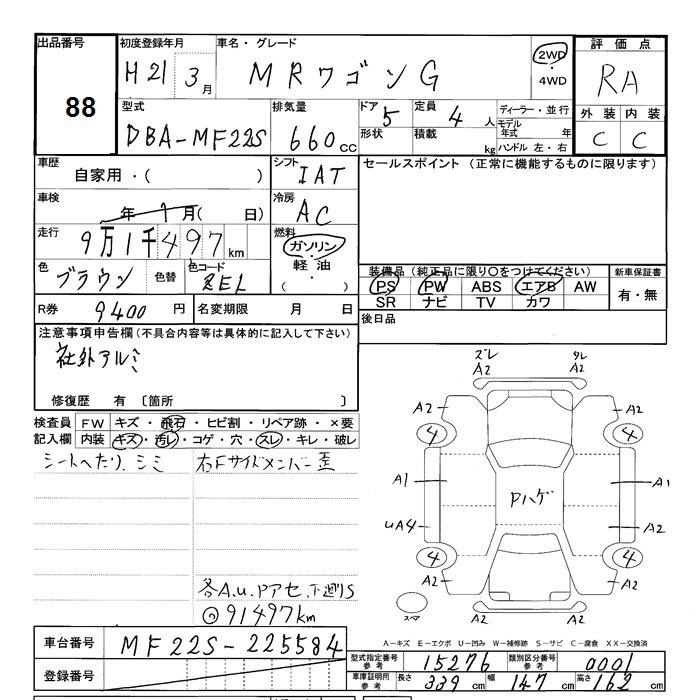 出品番号
88
初度登録年月
H21 3月
車名・グレード
MRワゴンG
2WD
・
4WD
評価点
RA
外装 内装
C C
型式
DBA-MF22S
排気量
660cc
ドア 5
形状
定員 4人
積載 kg
ディーラー・並行
モデル年式 年
ハンドル 左・右
車歴
自家用・( )
シフト
IAT
セールスポイント (正常に機能するものに限ります)
車検
年 月( 日)
冷房
AC
走行
9万1千497km
燃料
ガソリン
・
軽油
・
( )
色
ブラウン
色替
色コード
ZEL
装備品 (純正品に限り○をつけてください)
PS PW ABS エアB AW
SR ナビ TV カワ
新車保証書
有・無
R券 9400円
名変期限 月 日
後日品
注意事項申告欄(不具合内容等は具体的に記入して下さい)
社外アルミ
修復歴 有 〔箇所 〕
検査員記入欄
FW キズ・飛石・ヒビ割・リペア跡・×要
内装 キズ・汚レ・コゲ・穴・スレ・キレ・破レ
シートへたり、シミ
右Fサイドメンバー歪
各A.u.Pアセ、下廻りS
91497km
ズレ
A2
タレ
A2
A2
A2
4
4
A1
A1
Pハゲ
uA4
A2
4
4
A2
A2
A2
A2
スペア
A-キズ E-エクボ U-凹み W-補修跡 S-サビ C-腐食 XX-交換済
車台番号
MF22S-225584
登録番号
型式指定番号
参考
15276
類別区分番号
参考
0001
車庫証明用
参考
長さ 339cm 幅 147cm 高さ 162cm